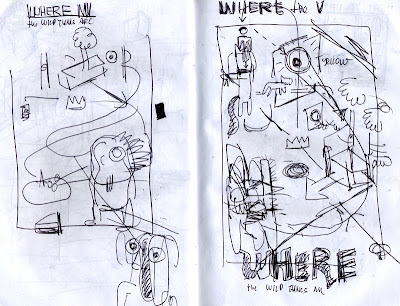 WHERE
the WILD THINGS ARE
WHERE the
YELLOW
WHERE
the WILD THINGS ARE